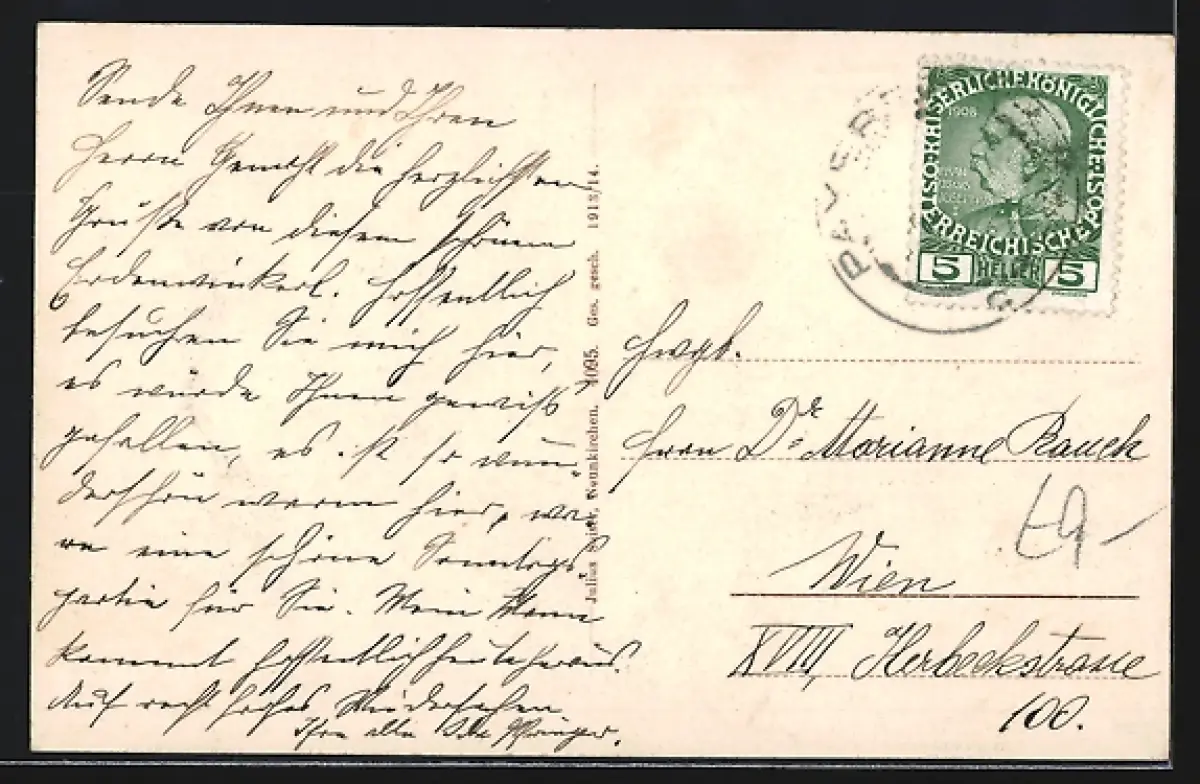 Sende Ihnen und Ihren
Herrn Gemahl die herzlichsten
Grüße von diesem schönen
Erdenwinkerl. Hoffentlich
besuchen Sie mich hier,
es würde Ihnen gewiß
gefallen, es ist so wun-
derschön warm hier, wä-
re eine schöne Sonntags-
partie für Sie. Mein Mann
kommt hoffentlich heute heraus.
Auf recht frohes Wiedersehen
Ihre alte
Julius Neunkirchen. 1095. Ges. gesch. 1913/14.
PAYER
KAISERLICHE KÖNIGLICHE
ÖSTERREICHISCHE POST
1908
5 HELLER 5
Hwgb.
Frau Dr Marianne Rauch
Wien
XVIII, Herbeckstrasse
100.